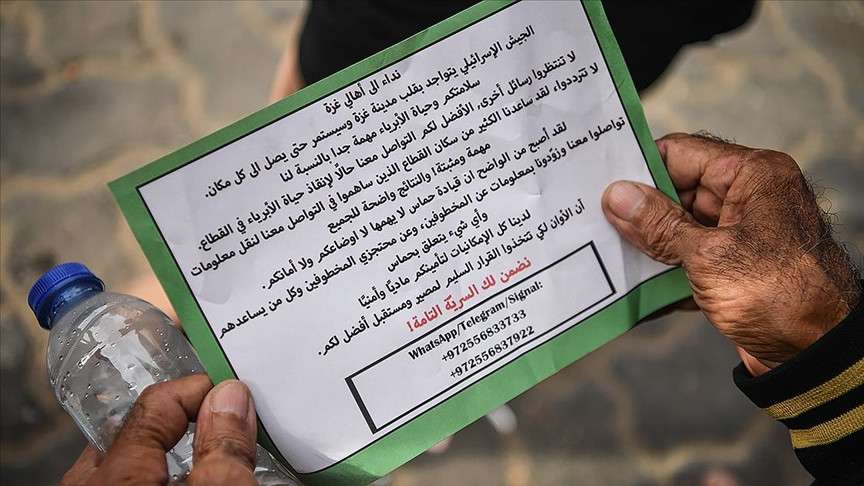 نداء الى أهالي غزة
الجيش الإسرائيلي يتواجد بقلب مدينة غزة وسيستمر حتى يصل الى كل مكان.
سلامتكم وحياة الأبرياء مهمة جدا بالنسبة لنا
لا تنتظروا رسائل أخرى, الأفضل لكم التواصل معنا حالًا لإنقاذ حياة الأبرياء في القطاع.
لا تترددوا, لقد ساعدنا الكثير من سكان القطاع الذين ساهموا في التواصل معنا لنقل معلومات
مهمة ومثبتة! والنتائج واضحة للجميع
لقد أصبح من الواضح ان قيادة حماس لا يهمها لا اوضاعكم ولا أمانكم.
تواصلوا معنا وزوّدونا بمعلومات عن المخطوفين, وعن محتجزي المخطوفين وكل من يساعدهم
وأي شيء يتعلق بحماس
لدينا كل الإمكانيات لتأمينكم ماديًا وأمنيًا
آن الأوان لكي تتخذوا القرار السليم لمصير ومستقبل أفضل لكم.
نضمن لك السريّة التامة!
WhatsApp/Telegram/Signal:
+972556833733
+972556837922